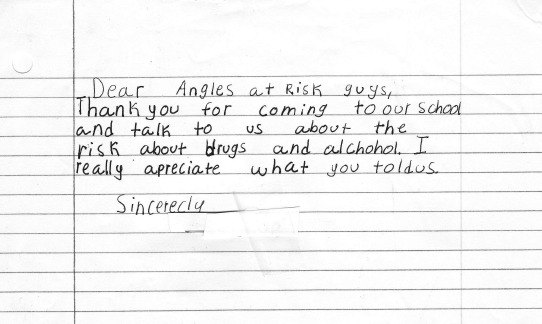 Dear Angles at Risk guys,
Thank you for coming to our school
and talk to us about the
risk about drugs and alchohol. I
really apreciate what you told us.
Sincerecly